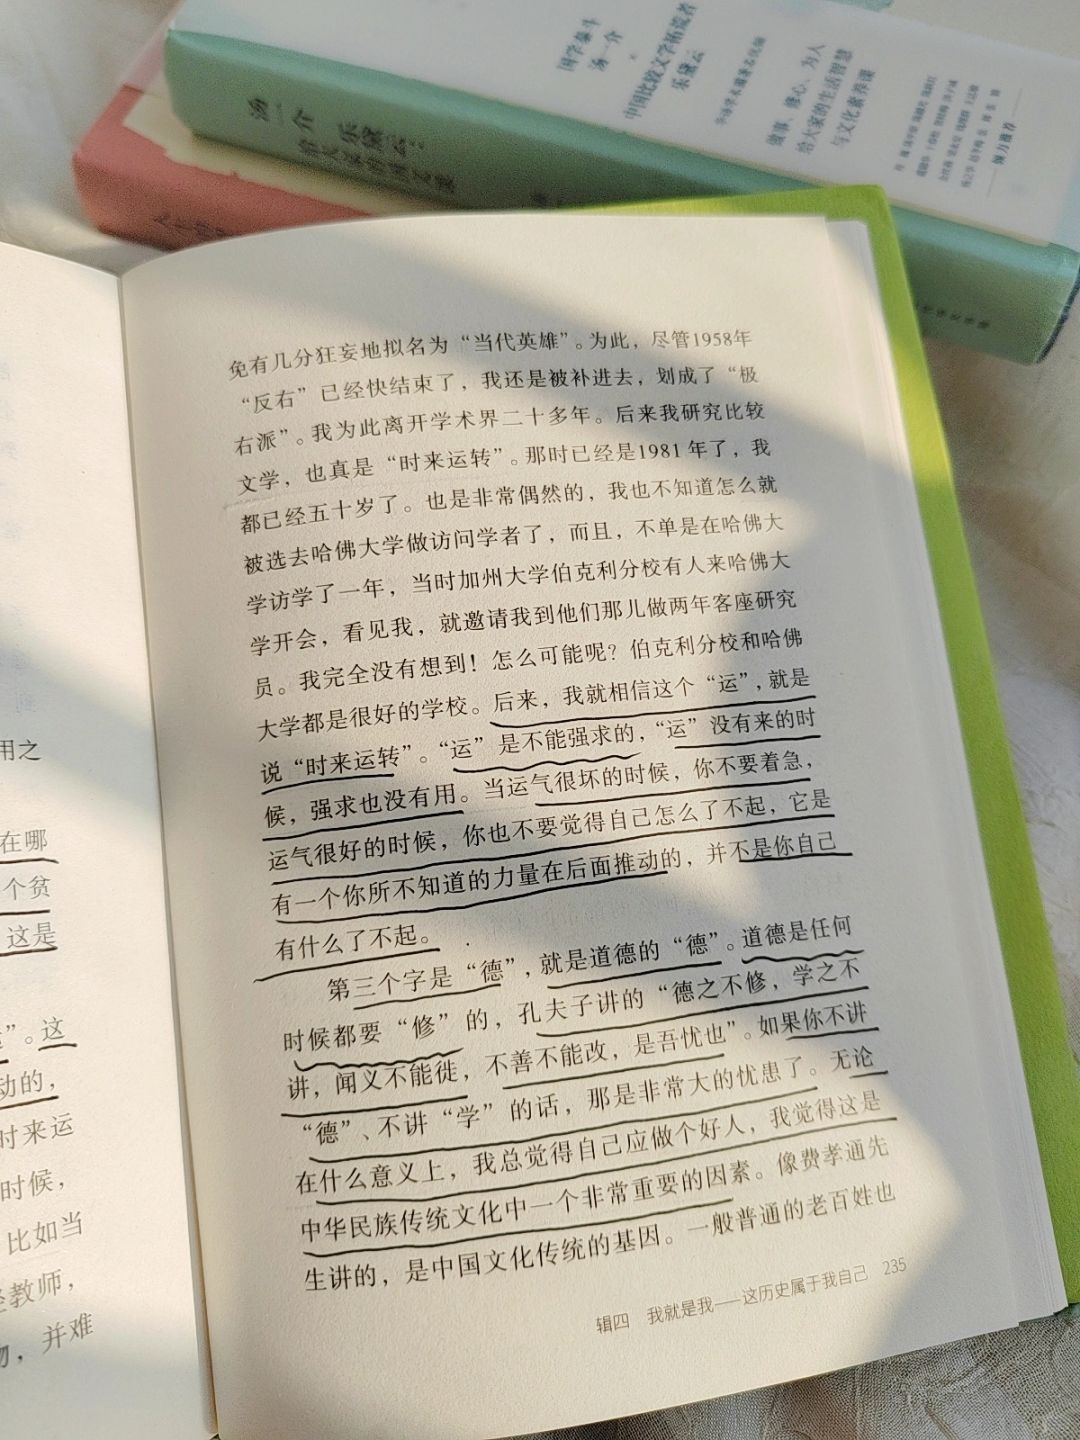 国学泰斗
汤一介
×
中国比较文学拓荒者
乐黛云
做事、修心、为人
给大家的生活智慧
与文化素养课
——倾力推荐——
汤一介 乐黛云：
用之
在哪
个贫
这是
”。这
动的，
时来运
时候，
比如当
教师，
，并难
免有几分狂妄地拟名为“当代英雄”。为此，尽管1958年
“反右”已经快结束了，我还是被补进去，划成了“极
右派”。我为此离开学术界二十多年。后来我研究比较
文学，也真是“时来运转”。那时已经是1981年了，我
都已经五十岁了。也是非常偶然的，我也不知道怎么就
被选去哈佛大学做访问学者了，而且，不单是在哈佛大
学访学了一年，当时加州大学伯克利分校有人来哈佛大
学开会，看见我，就邀请我到他们那儿做两年客座研究
员。我完全没有想到！怎么可能呢？伯克利分校和哈佛
大学都是很好的学校。后来，我就相信这个“运”，就是
说“时来运转”。“运”是不能强求的，“运”没有来的时
候，强求也没有用。当运气很坏的时候，你不要着急，
运气很好的时候，你也不要觉得自己怎么了不起，它是
有一个你所不知道的力量在后面推动的，并不是你自己
有什么了不起。
第三个字是“德”，就是道德的“德”。道德是任何
时候都要“修”的，孔夫子讲的“德之不修，学之不
讲，闻义不能徙，不善不能改，是吾忧也”。如果你不讲
“德”、不讲“学”的话，那是非常大的忧患了。无论
在什么意义上，我总觉得自己应做个好人，我觉得这是
中华民族传统文化中一个非常重要的因素。像费孝通先
生讲的，是中国文化传统的基因。一般普通的老百姓也
辑四 我就是我——这历史属于我自己 235